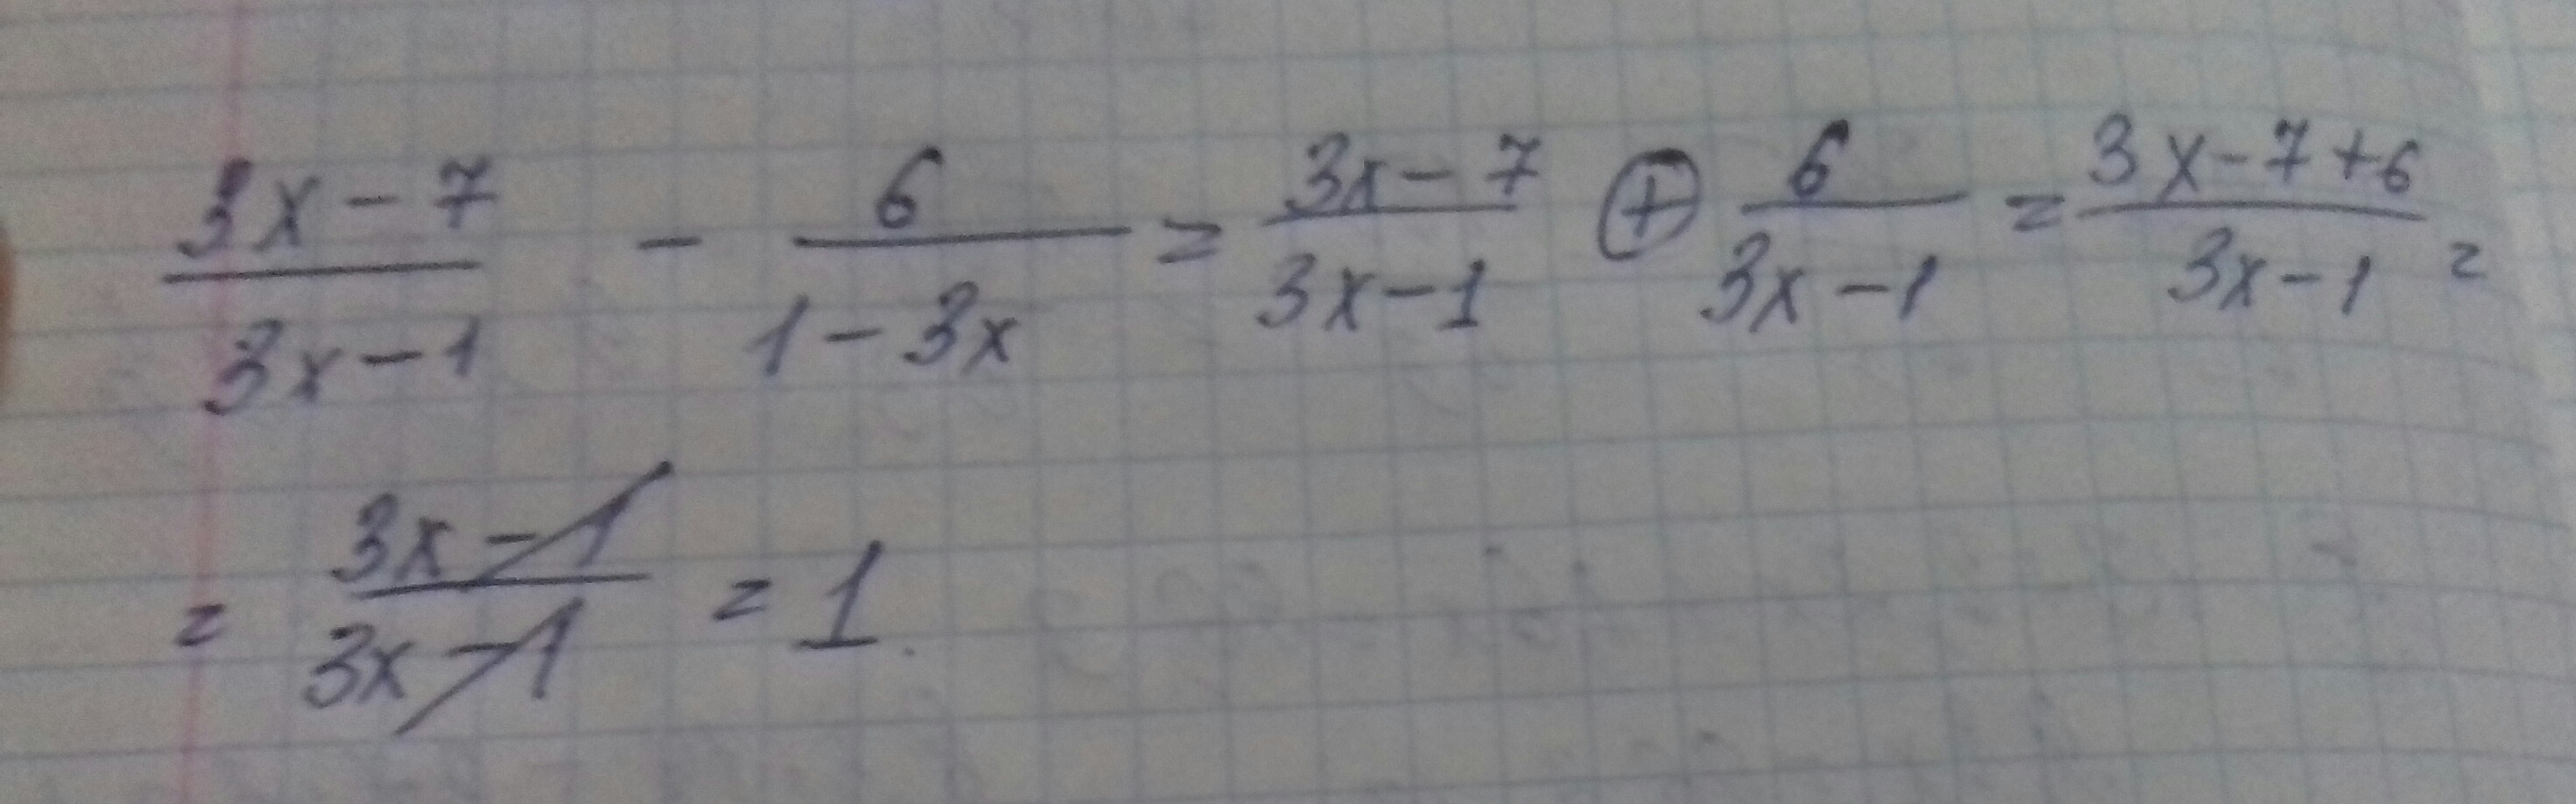 (3x-7)/(3x-1) - 6/(1-3x) = (3x-7)/(3x-1) ⊕ 6/(3x-1) = (3x-7+6)/(3x-1) =
= (3x-1)/(3x-1) = 1.